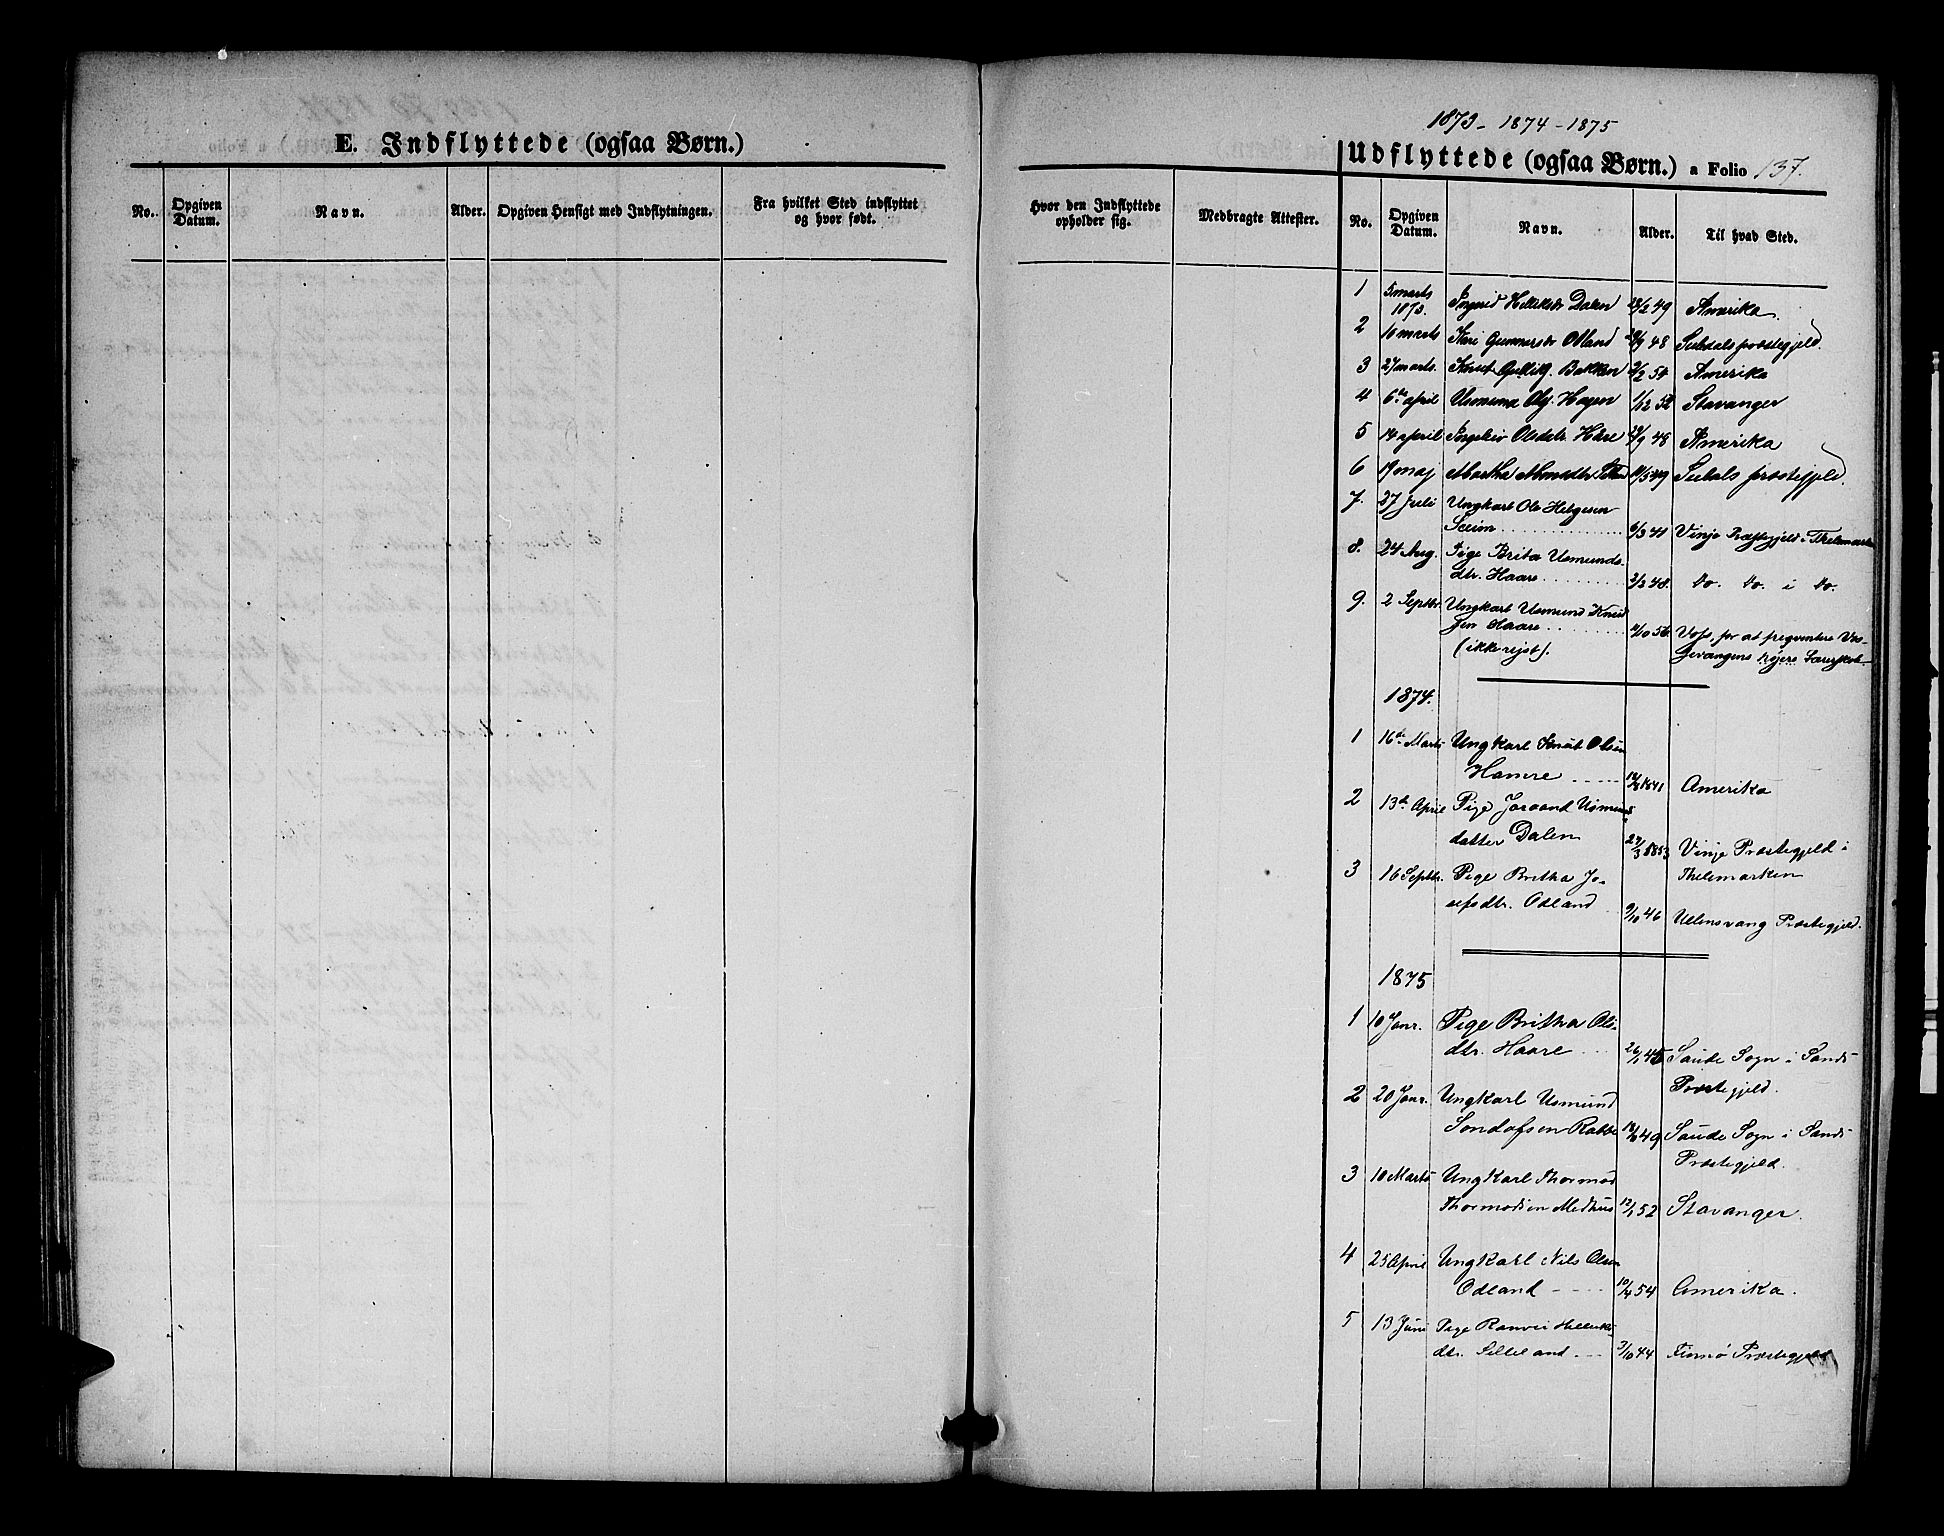 E. Indflyttede (ogsaa Børn.)
No. Opgiven Datum. Navn. Alder. Opgiven Hensigt med Indflytningen. Fra hvilket Sted indflyttet og hvor født.
1873 - 1874 - 1875
Udflyttede (ogsaa Børn.) a Folio 137.
Hvor den Indflyttede opholder sig. Medbragte Attester. No. Opgiven Datum. Navn. Alder. Til hvad Sted.
1 5 marts Ingerid Dalen 28/2 49 Amerika.
1873.
2 10 marts Kari Gunnarsdr Odland /9 48 Suledals præstegjeld.
3 27 marts. Knut Gullikf. Bakken 2/2 54 Amerika
4 6te april Usmund Olf. Hagen 1/12 52 Stavanger
5 14 april Ingebiør Olsdtr. Haare /9 48 Amerika
6 19 maj Martha /5 49 Suledals præstegjeld.
7. 27 Juli Ungkarl Ole Helgesen
Seeim 6/3 41 Vinje Præstegjeld i Thelemarken
8. 24 Aug. Pige Brita Usmunds-
dtr. Haare 2/2 48. Do. Do. i Do.
9. 2 Septbr. Ungkarl Usmund Knud-
sen Haare /10 56 Voss, for at freqventere Vos-
(ikke rejst). sevangens højere
1874.
1 16de Marts Ungkarl Knut Olsen
Hamre 1841 Amerika
2 13de April Pige Joraand Usmunds
datter Dalen 27/3 1853 Vinje Præstegjeld i
3 16 Septbr. Pige Britha Jo- Thelemarken
sefsdtr. Odland 9/10 46 Ullensvang Præstegjeld.
1875
1 10 Janr. Pige Britha Ols-
dtr. Haare 26/1 45 Saude Sogn i Sands
Præstegjeld.
2 20 Janr. Ungkarl Usmund
Sondofsen Rabbe 49 Saude Sogn i Sands
Præstegjeld.
3 10 Marts Ungkarl Thormod
Thormodsen Medhus 12/1 52 Stavanger.
4 25 April Ungkarl Nils Olsen
Odland 10/4 54 Amerika.
5 13 Juni Pige Ranvei Helleiks-
dtr. 3/10 44 Finnø Præstegjeld